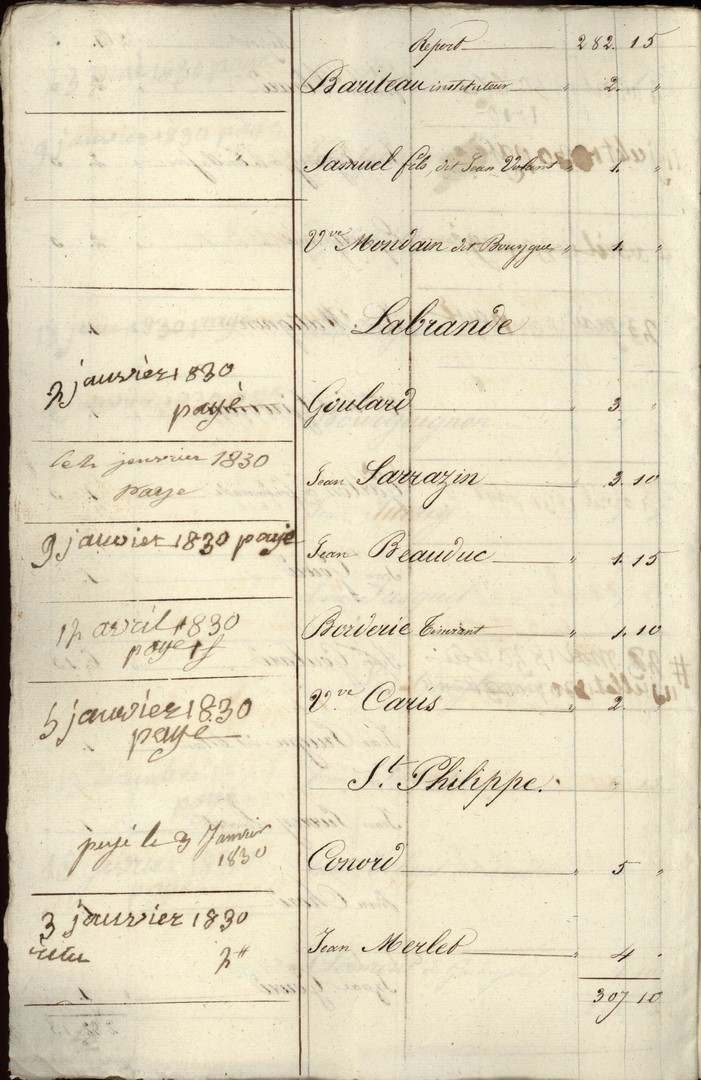 Report 282. 15
Bariteau instituteur " 2. "
Samuel fils, dit Jean Volant " 1. "
V.ve Mondain dit Bouyque " 1. "
Labrande
2 janvier 1830
payé
Goulard " 3 "
le 2 janvier 1830
paye
Jean Sarrazin " 3. 10
9 janvier 1830 payé
Jean Beauduc " 1. 15
12 avril 1830
paye
Borderie " 1. 10
5 janvier 1830
paye
V.ve Caris " 2
St. Philippe.
payé le 3 Janvier
1830
Conord " 5 "
3 janvier 1830
2#
Jean Merlet 4 "
307 10